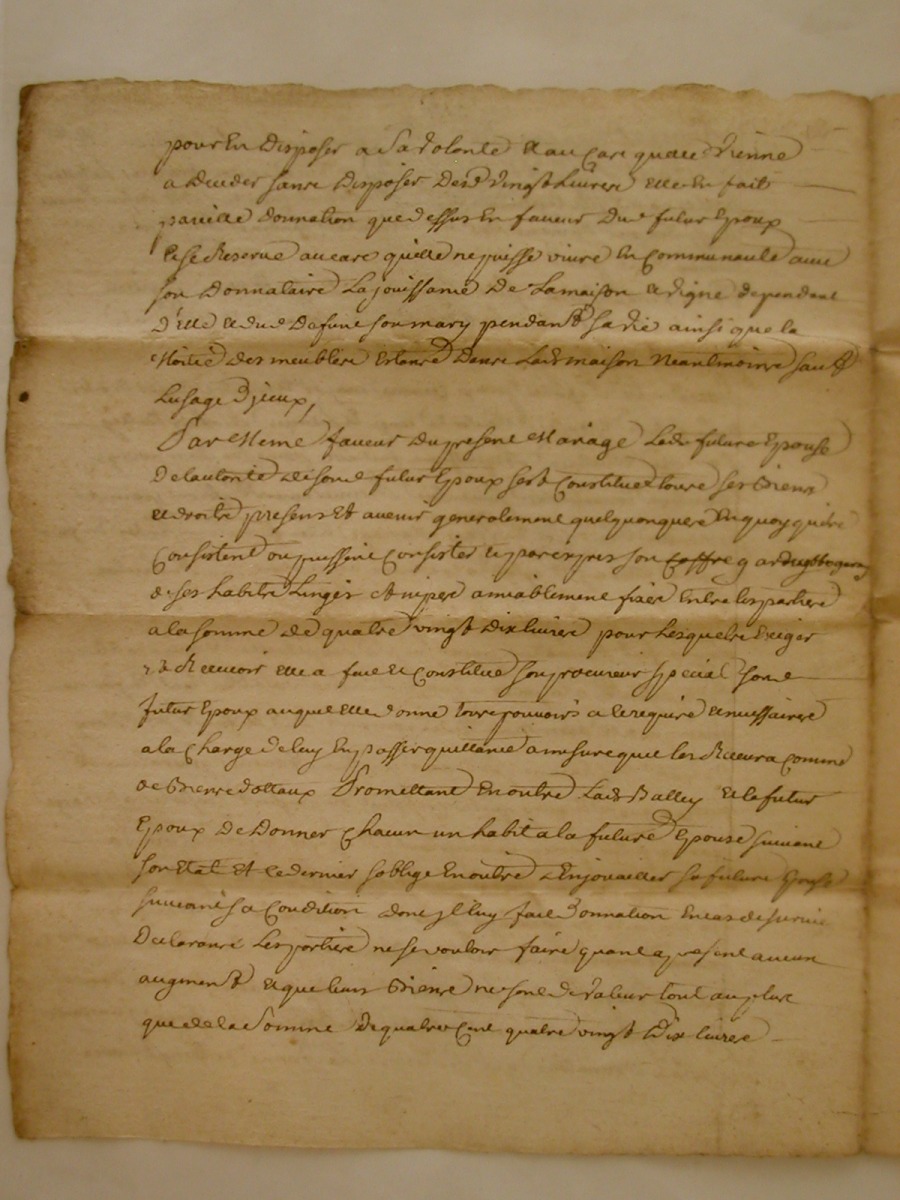 pour En Disposer a Sa Volonte Et au Cas quelle Vienne
a deceder sans Disposer Desd vingt Livres elle En fait
pareille Donnation que dessus En faveur Dud futur Epoux
Et se Reserve au cas quelle ne puisse vivre En Communauté avec
son Donnataire La jouissance De La maison et vigne dependant
D'elle et dud Dafune son mary pendant sa vie ainsi que la
Moitié des meubles Estans Dans Lad maison Neantmoins sauf
Lusage Djceux,
Par Meme faveur du present Mariage Lade future Epouse
De lautorité de son d futur Epoux sest Constitué tous ses Biens
et droits presens Et avenir generalement quelquonques En quoy quils
Consistent ou puissent Consister et par expres son Coffre
de ses habits Linges amiablement fixés Entre les parties
a la somme de quatre vingt Dix livres pour Lesquels Exiger
et Recevoir elle a fait et Constitué son procureur special son d
futur Epoux auquel elle donne tous pouvoirs a ce requis et necessaires
a la Charge de luy En passer quittance a mesure que les Recevra Comme
de Biens dottaux Promettant En outre Lad Balley et le futur
Epoux De Donner Chacun un habit a la future Epouse suivant
son Etat Et ce dernier soblige En outre dEnjouailler sa future Epouse
suivant sa Condition dont jl luy fait Donnation En cas de survie
Declarans Les parties ne se vouloir faire quant a present aucun
augment et que leurs Biens ne sont de valeur tout au plus
que de la Somme De quatre Cent quatre vingt Dix livres